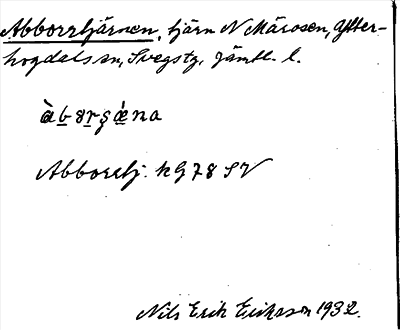 Abborrtjärnen, tjärn N Märosen, Ytter-
hogdals sn, Svegs tg, Jämtl. l.
Abborrtj. hG78 SV
Nils Erik Eriksson 1932.